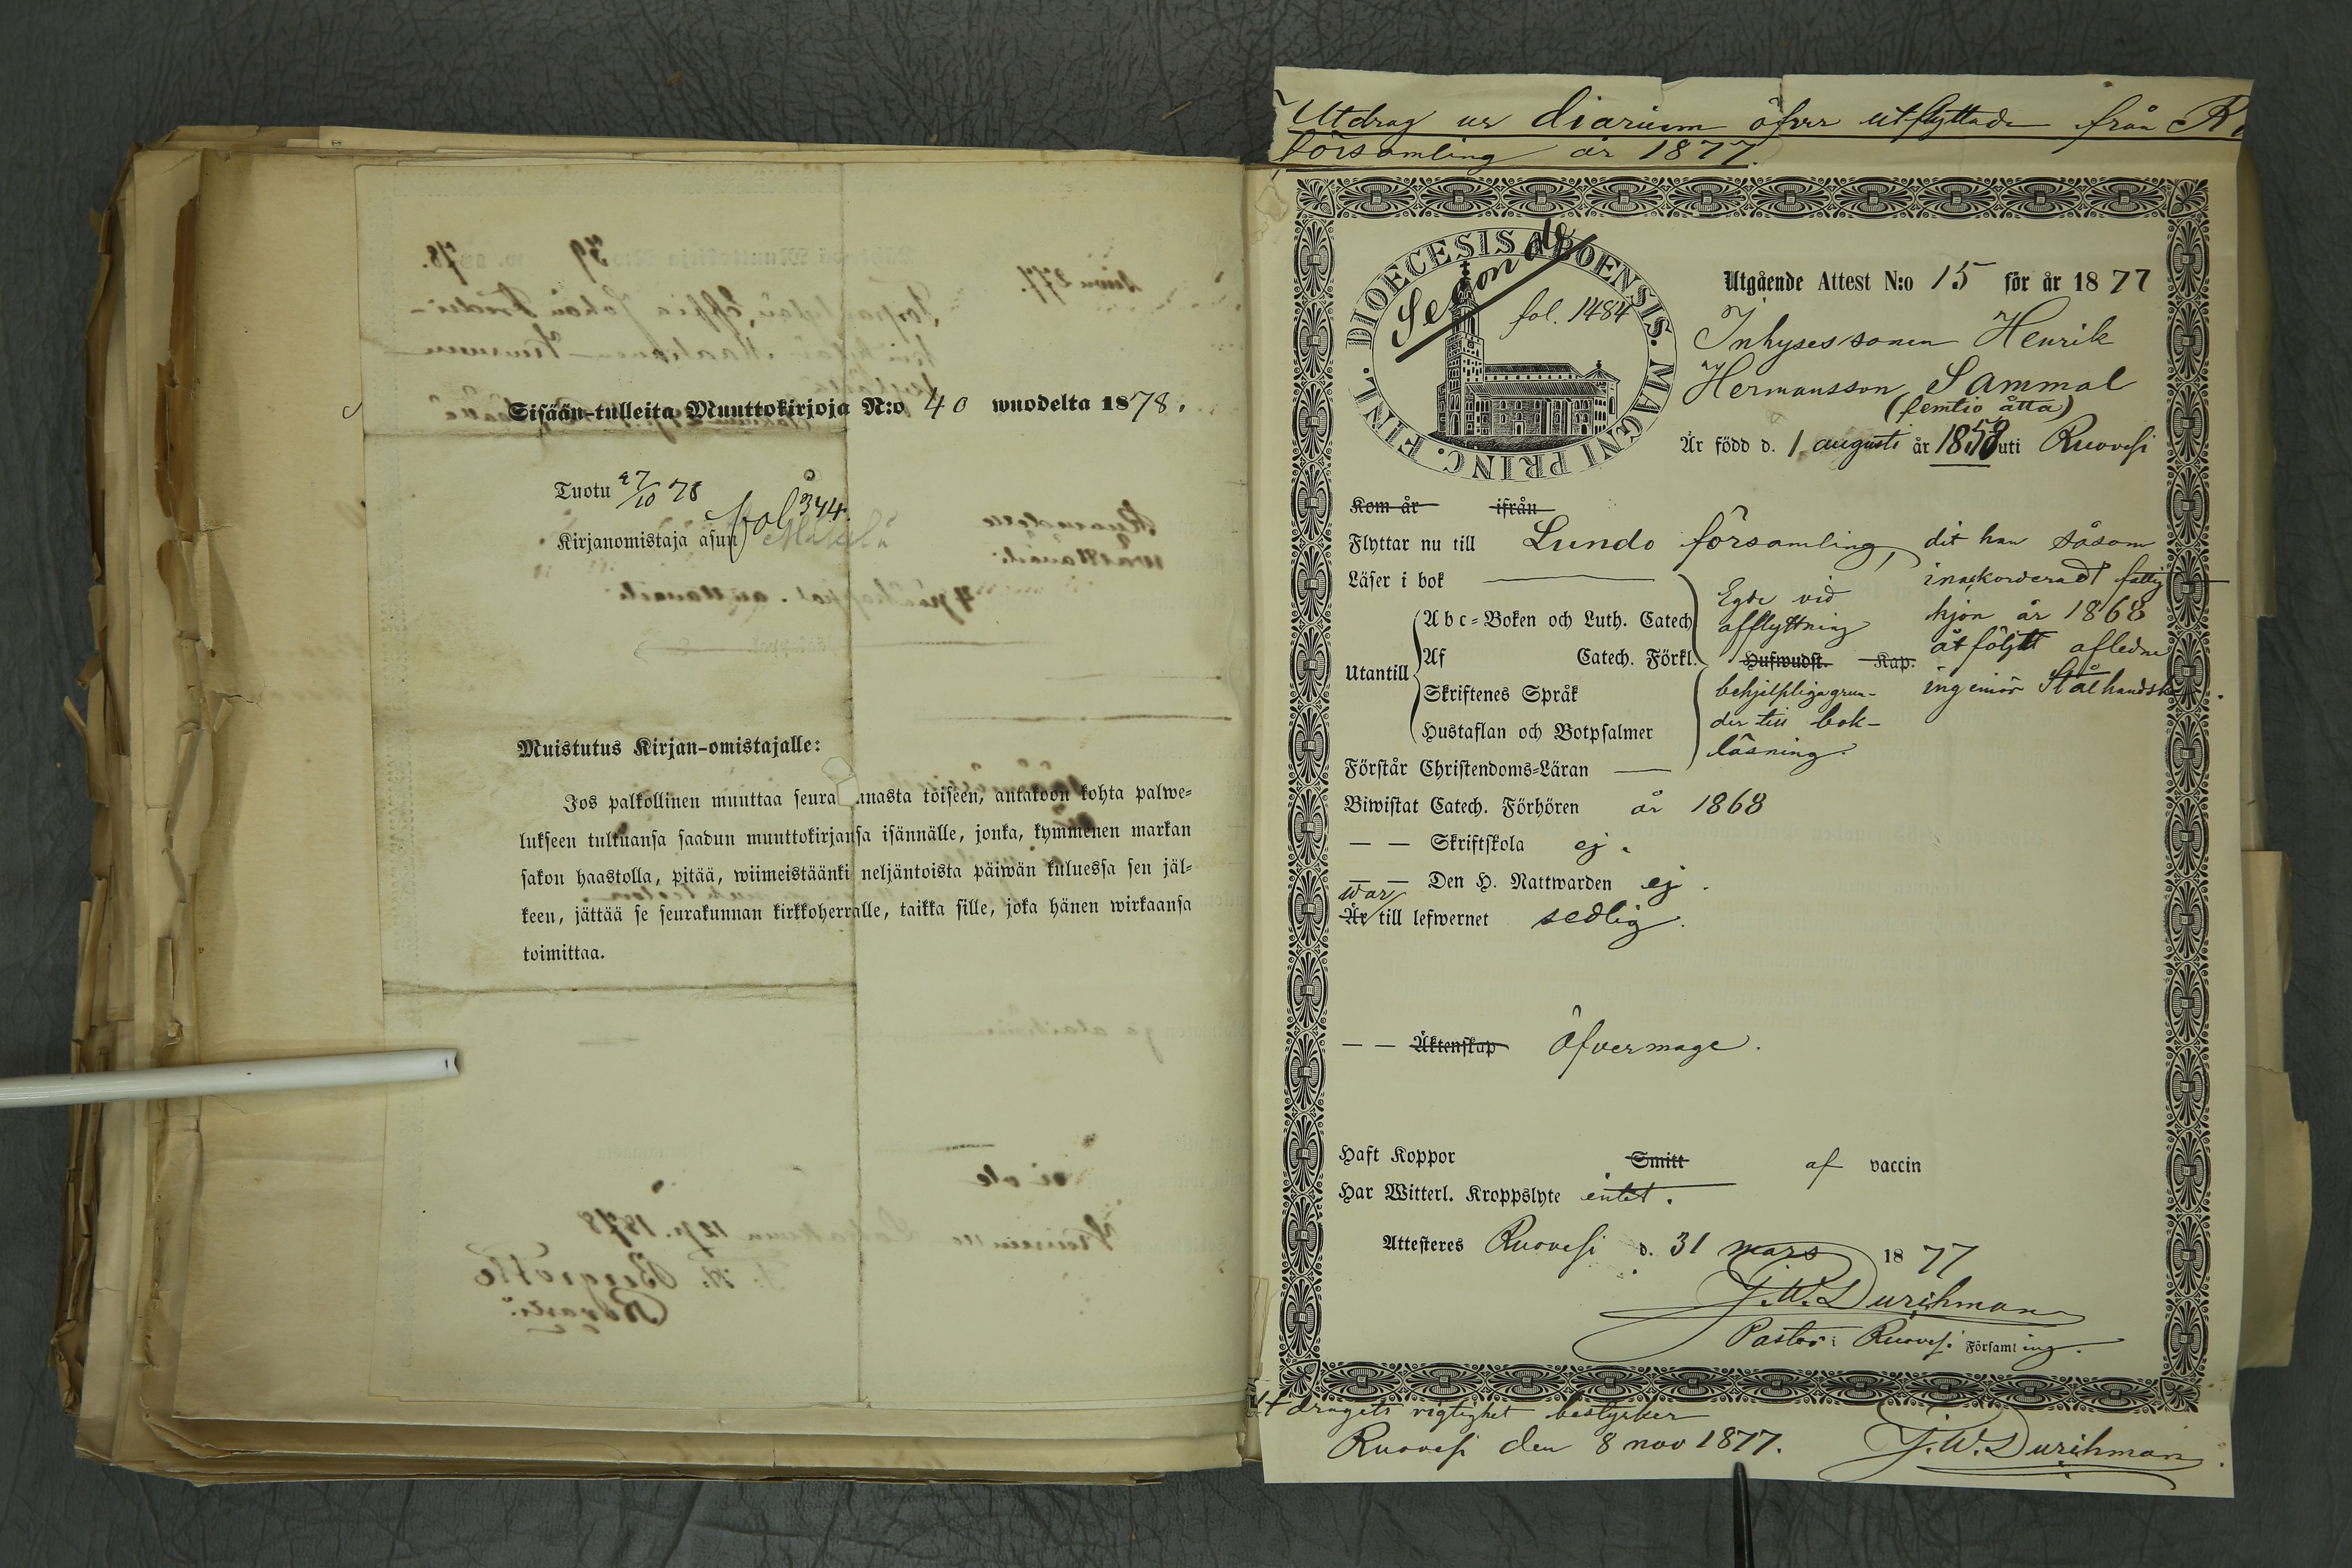 Sisään-tulleita Muuttokirjoja N:o 40 wuodelta 1878.
Tuotu 27/10 78
fol 344.
Kirjanomistaja asuu
Muistutus Kirjan-omistajalle:
Jos palkollinen muuttaa seurakunnasta toiseen, antakoon kohta palwe=
lukseen tultuansa saadun muuttokirjansa isännälle, jonka, kymmenen markan
sakon haastolla, pitää, wiimeistäänki neljäntoista päiwän kuluessa sen jäl=
keen, jättää se seurakunnan kirkkoherralle, taikka sille, joka hänen wirkaansa
toimittaa.
Utdrag ur diarium öfver utflyttade från
församling år 1877.
DIOECESIS ABOENSIS. MAGNI PRINC. FINL.
Secondo
fol. 1484
Utgående Attest N:o 15 för år 1877
Inhysessonen Henrik
Hermansson Sammal
(femtio åtta)
Är född d. 1 augusti år 1858 uti Ruovesi
Kom år ifrån
Flyttar nu till Lundo församling, dit han såsom
inackorderadt fattig
hjon år 1868
åtföljt afledne
ingeniör Stålhandske.
Läser i bok
Utantill
Abc=Boken och Luth. Catech
Af Catech. Förkl. Hufwudst. Kap.
Skriftenes Språk
Hustaflan och Botpsalmer
Egde vid
afflyttning
behjelpliga grun-
der till bok-
läsning.
Förstår Christendoms=Läran
Biwistat Catech. Förhören år 1868
— — Skriftskola ej.
— — Den H. Nattwarden ej.
war
Är till lefwernet sedlig.
— — Äktenskap Öfvermage.
Haft Koppor Smitt af vaccin
Har Witterl. Kroppslyte intet.
Attesteres Ruovesi d. 31 mars 1877
J.W. Durchman
Pastor i Ruovesi Församling.
Utdragets rigtighet bestyrker
Ruovesi den 8 nov 1877. J.W. Durchman.